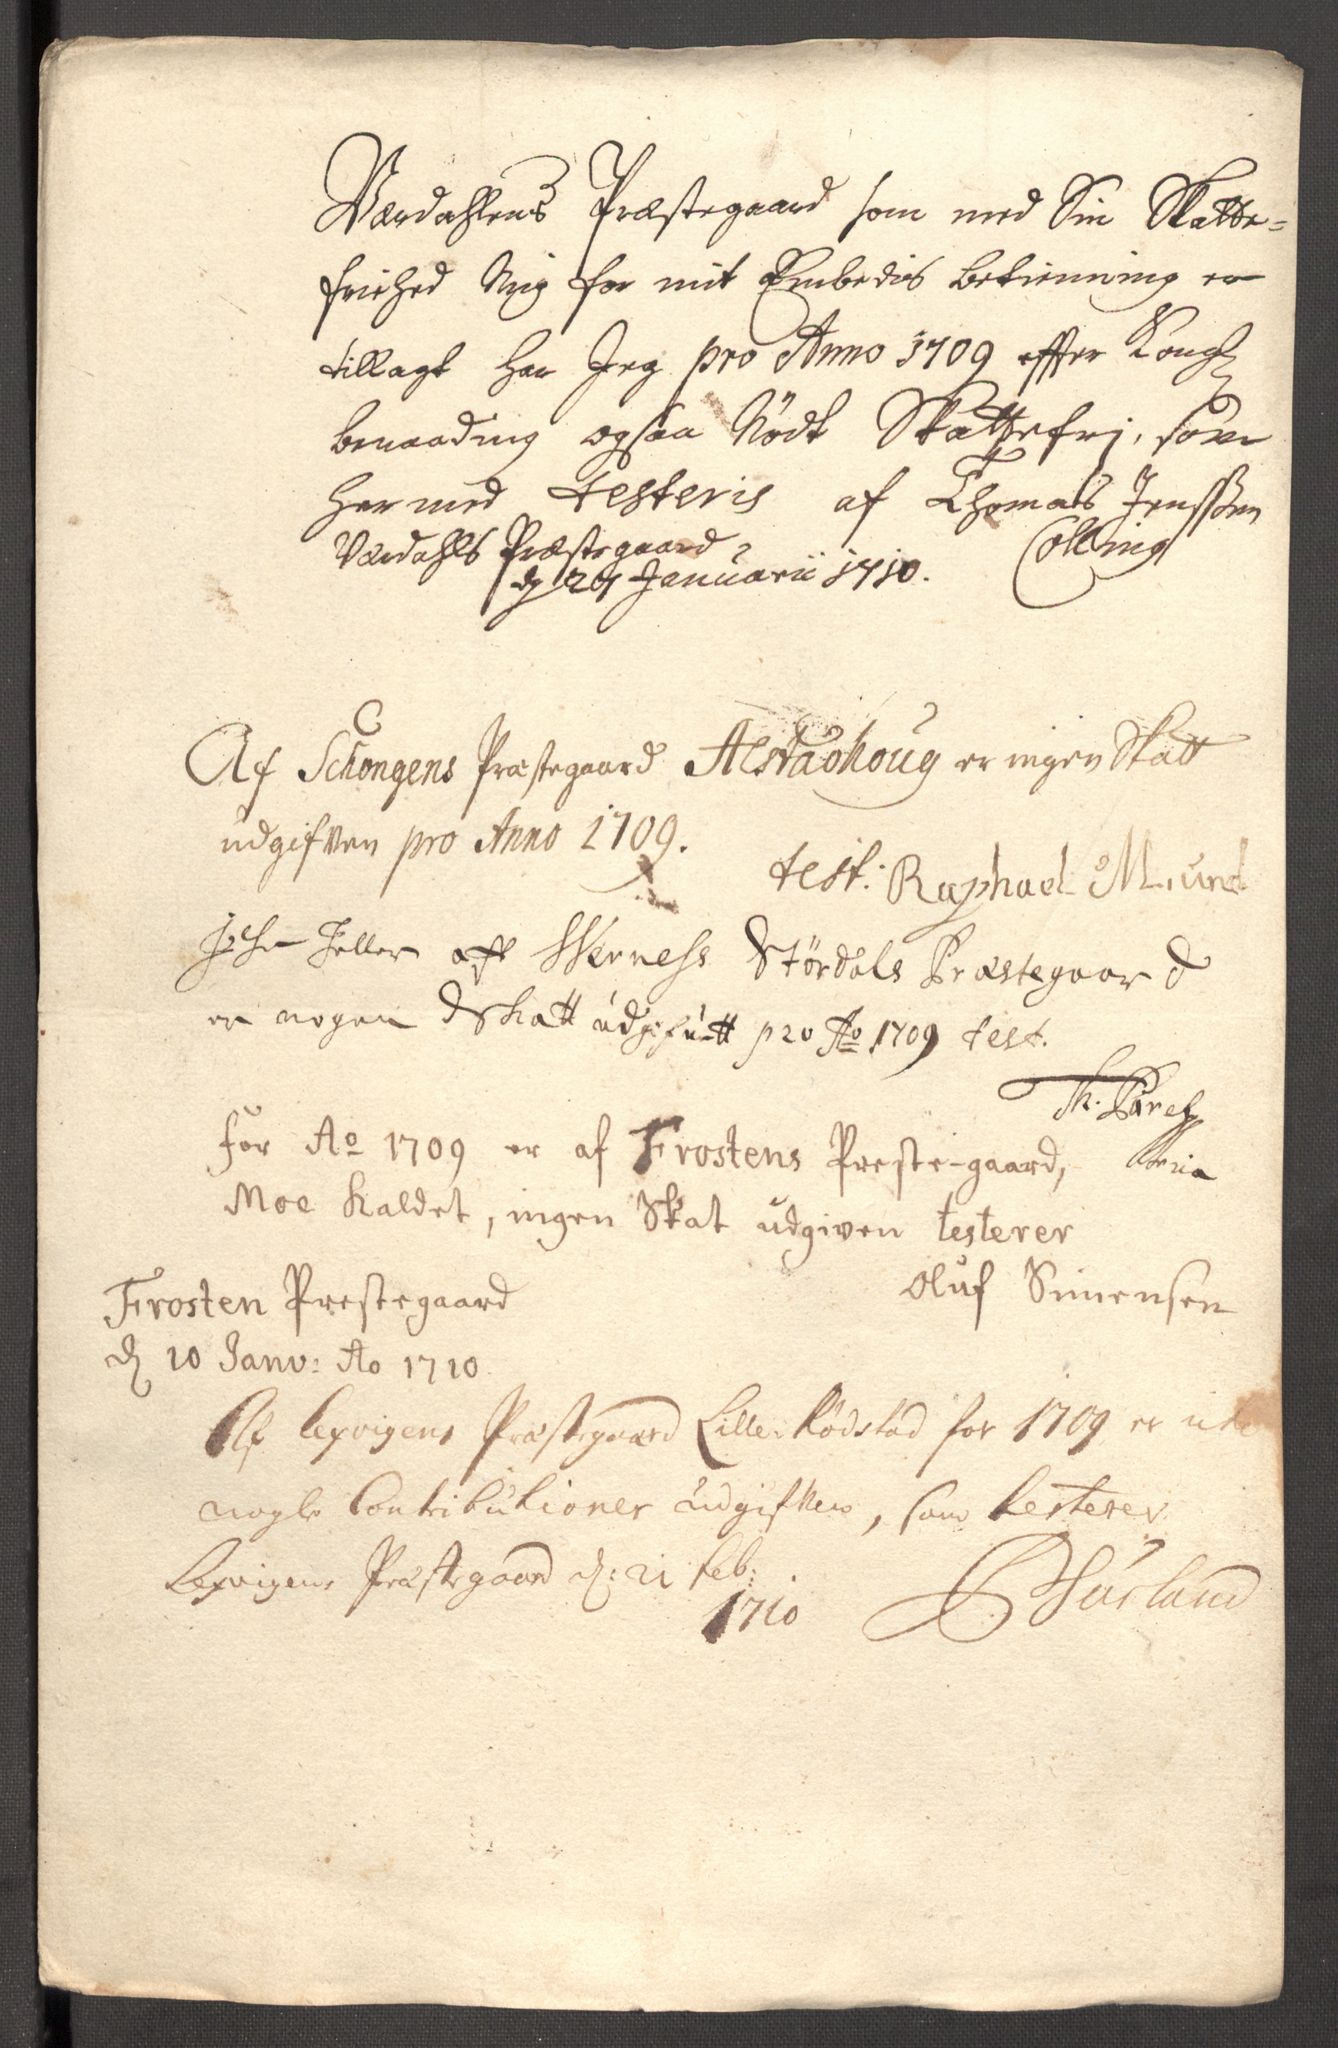 Værdahlens Præstegaard som med Sin Skatte=
friehed Mig for mit Embedis betiening er
tillagt har Jeg pro Anno 1709 effter Kongl
benaading ogsaa Nödt Skattefrj, som
hermed testeris af Thomas Jenssøn
Værdahls Præstegaard Colling
d 29 Januarii 1710.
Af Schongens Præstegaard Alstadhoug er ingen Skatt
udgifven pro Anno 1709.
test: Raphael Mund
er nogen Skatt udgifuett pro Ao 1709 test.
aff Werness Størdals Præstegaard
for Ao 1709 er af Frostens Preste-gaard,
Moe kaldet, ingen Skat udgiven testerer
Oluf Simensen
Frosten Prestegaard
d 10 Janv: Ao 1710
Af Lexvigens Præstegaard Lille Ködstad for 1709 er
nogle Contributioner udgifven, som testerer
Lexvigens Præstegaard d: 21 feb:
1710